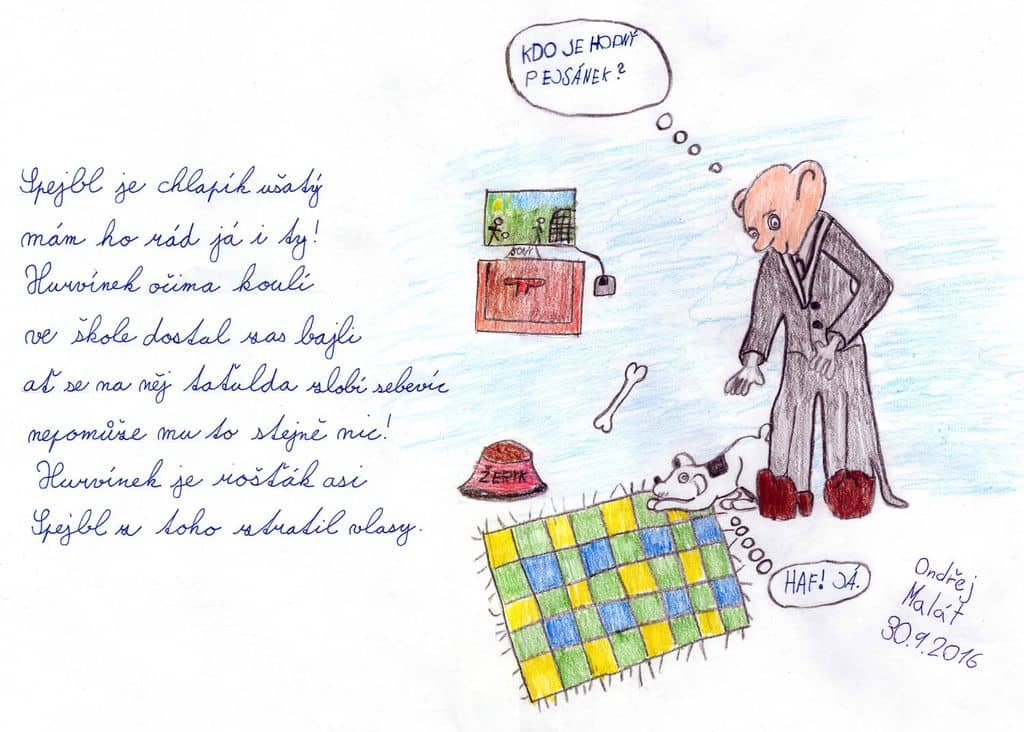 KDO JE HODNÝ
PEJSÁNEK?
Spejbl je chlapík ušatý
mám ho rád já i ty!
Hurvínek očima koulí
ve škole dostal zas bajli
ať se na něj taťulda zlobí sebevíc
nepomůže mu to stejně nic!
Hurvínek je rošťák asi
Spejbl z toho ztratil vlasy.
SONY
ŽERYK
HAF! JÁ.
Ondřej
Malát
30.9.2016